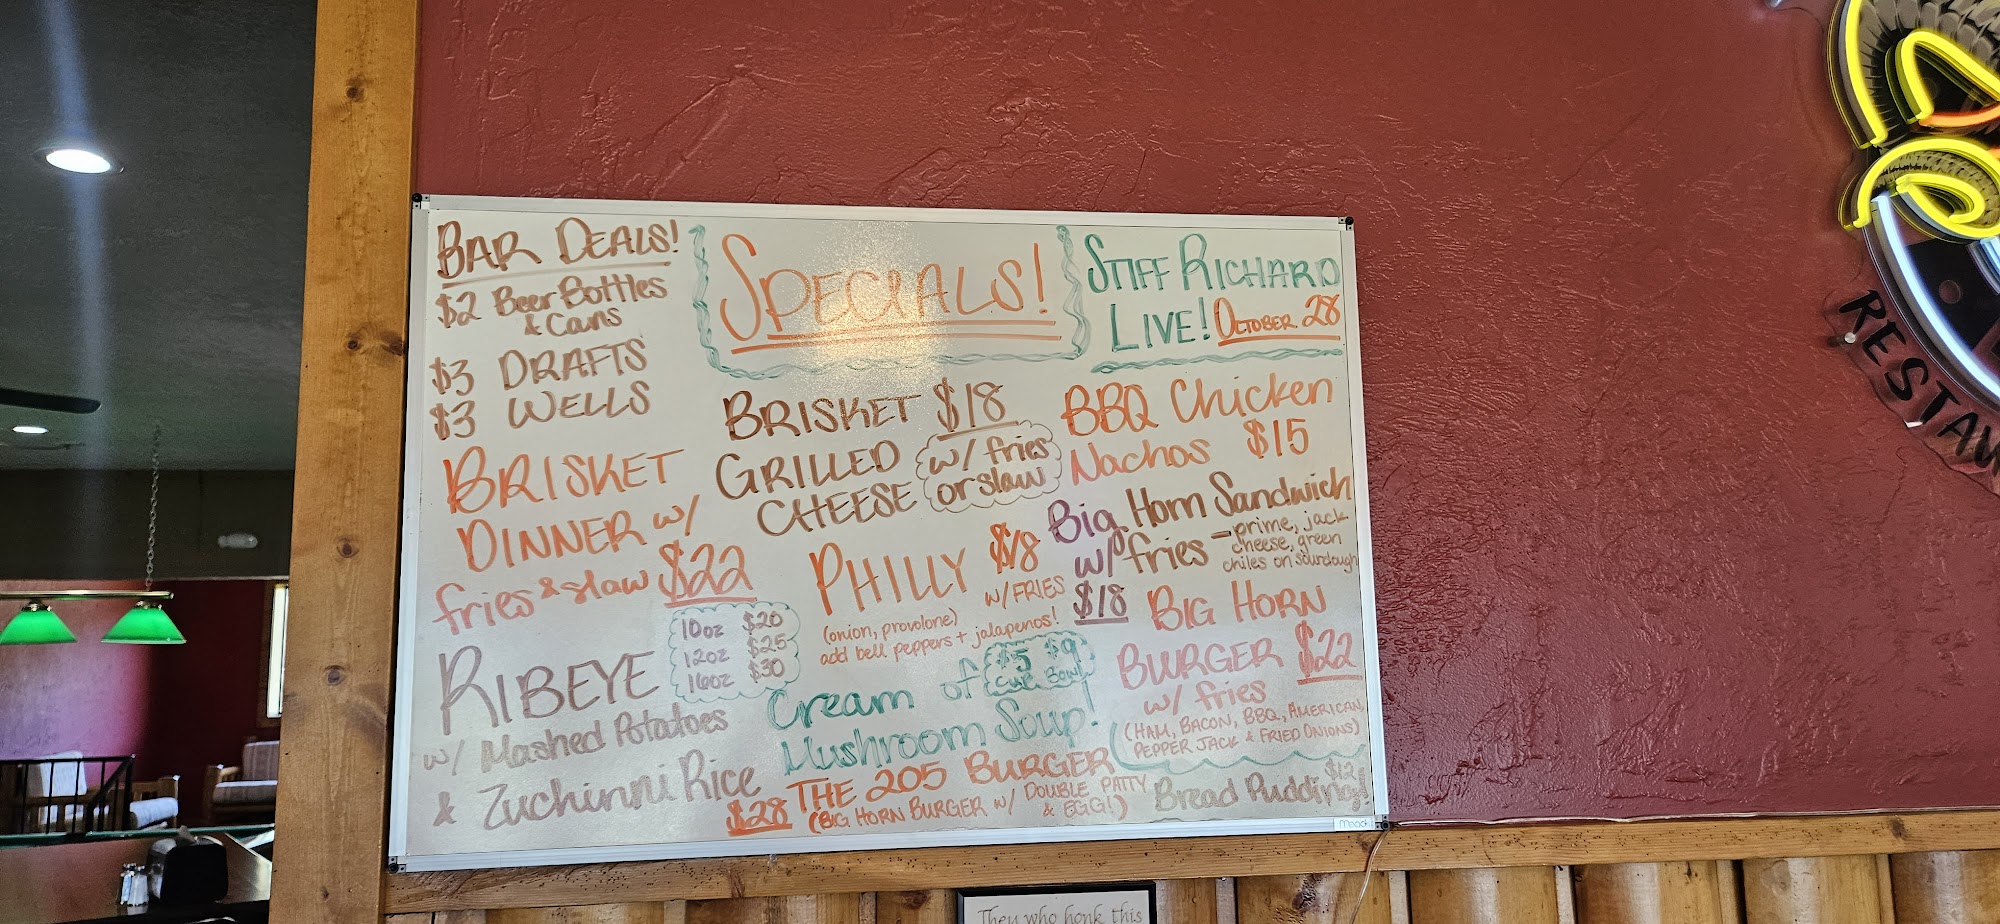 BAR DEALS!
$2 Beer Bottles
& Cans
$3 DRAFTS
$3 WELLS
SPECIALS!
STIFF RICHARD
LIVE! OCTOBER 28
BRISKET
DINNER w/
fries & slaw $22
BRISKET $18
GRILLED
CHEESE
w/ fries
or slaw
BBQ Chicken
Nachos $15
Big Horn Sandwich
w/ fries - prime, jack
cheese, green
chiles on sourdough
$18
PHILLY $18
w/ FRIES
(onion, provolone)
add bell peppers + jalapenos!
RIBEYE
10oz $20
12oz $25
16oz $30
w/ Mashed Potatoes
& Zuchinni Rice
Cream of
Mushroom Soup!
$5 $9
CUP BOWL
BIG HORN
BURGER $22
w/ fries
(HAM, BACON, BBQ, AMERICAN,
PEPPER JACK & FRIED ONIONS)
$28 THE 205 BURGER
(BIG HORN BURGER w/ DOUBLE PATTY
& EGG!)
Bread Pudding!
$12
Mead
They who honk this